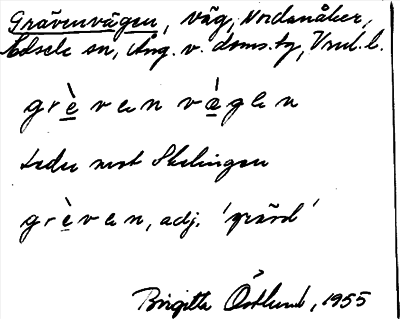 Grävenvägen, väg, Nordanåker,
Edsele sn, Ång. v. doms.tg, Vrnl. l.
grèven vàgen
Leder mot Skelingen
grèven, adj. 'grävd'
Birgitta Östlund, 1955